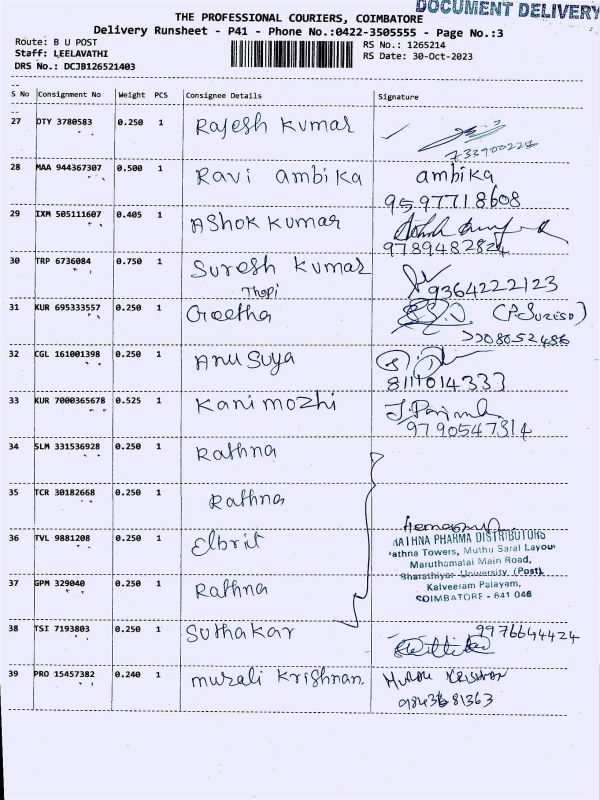 DOCUMENT DELIVERY
THE PROFESSIONAL COURIERS, COIMBATORE
Delivery Runsheet - P41 - Phone No.:0422-3505555 - Page No.:3
Route: B U POST
Staff: LEELAVATHI
DRS No.: DCJB126521403
RS No.: 1265214
RS Date: 30-Oct-2023
S No Consignment No Weight PCS Consignee Details Signature
27 OTY 3780583 0.250 1 Rajesh Kumar
28 MAA 944367307 0.500 1 Ravi ambika ambika
9597718608
29 IXM 505111607 0.405 1 AShok kumar
9789482824
30 TRP 6736084 0.750 1 Suresh Kumar
9364222123
Thopi
31 KUR 695333557 0.250 1 Geetha
32 CGL 161001398 0.250 1 Anusuya
8111014333
33 KUR 7000365678 0.525 1 Kanimozhi
9790547314
34 SLM 331536928 0.250 1 Rathna
35 TCR 30182668 0.250 1 Rathna
36 TVL 9881208 0.250 1 Elbrit
RATHNA PHARMA DISTRIBUTORS
Rathna Towers, Muthu Saral Layout
Maruthamalai Main Road,
Bharathiyar University (Post),
Kalveeram Palayam,
COIMBATORE - 641 046
37 GPM 329040 0.250 1 Rathna
38 TSI 7193803 0.250 1 Suthakar 9976644424
39 PRO 15457382 0.240 1 murali Krishnan Murali Krishnan
9843681363